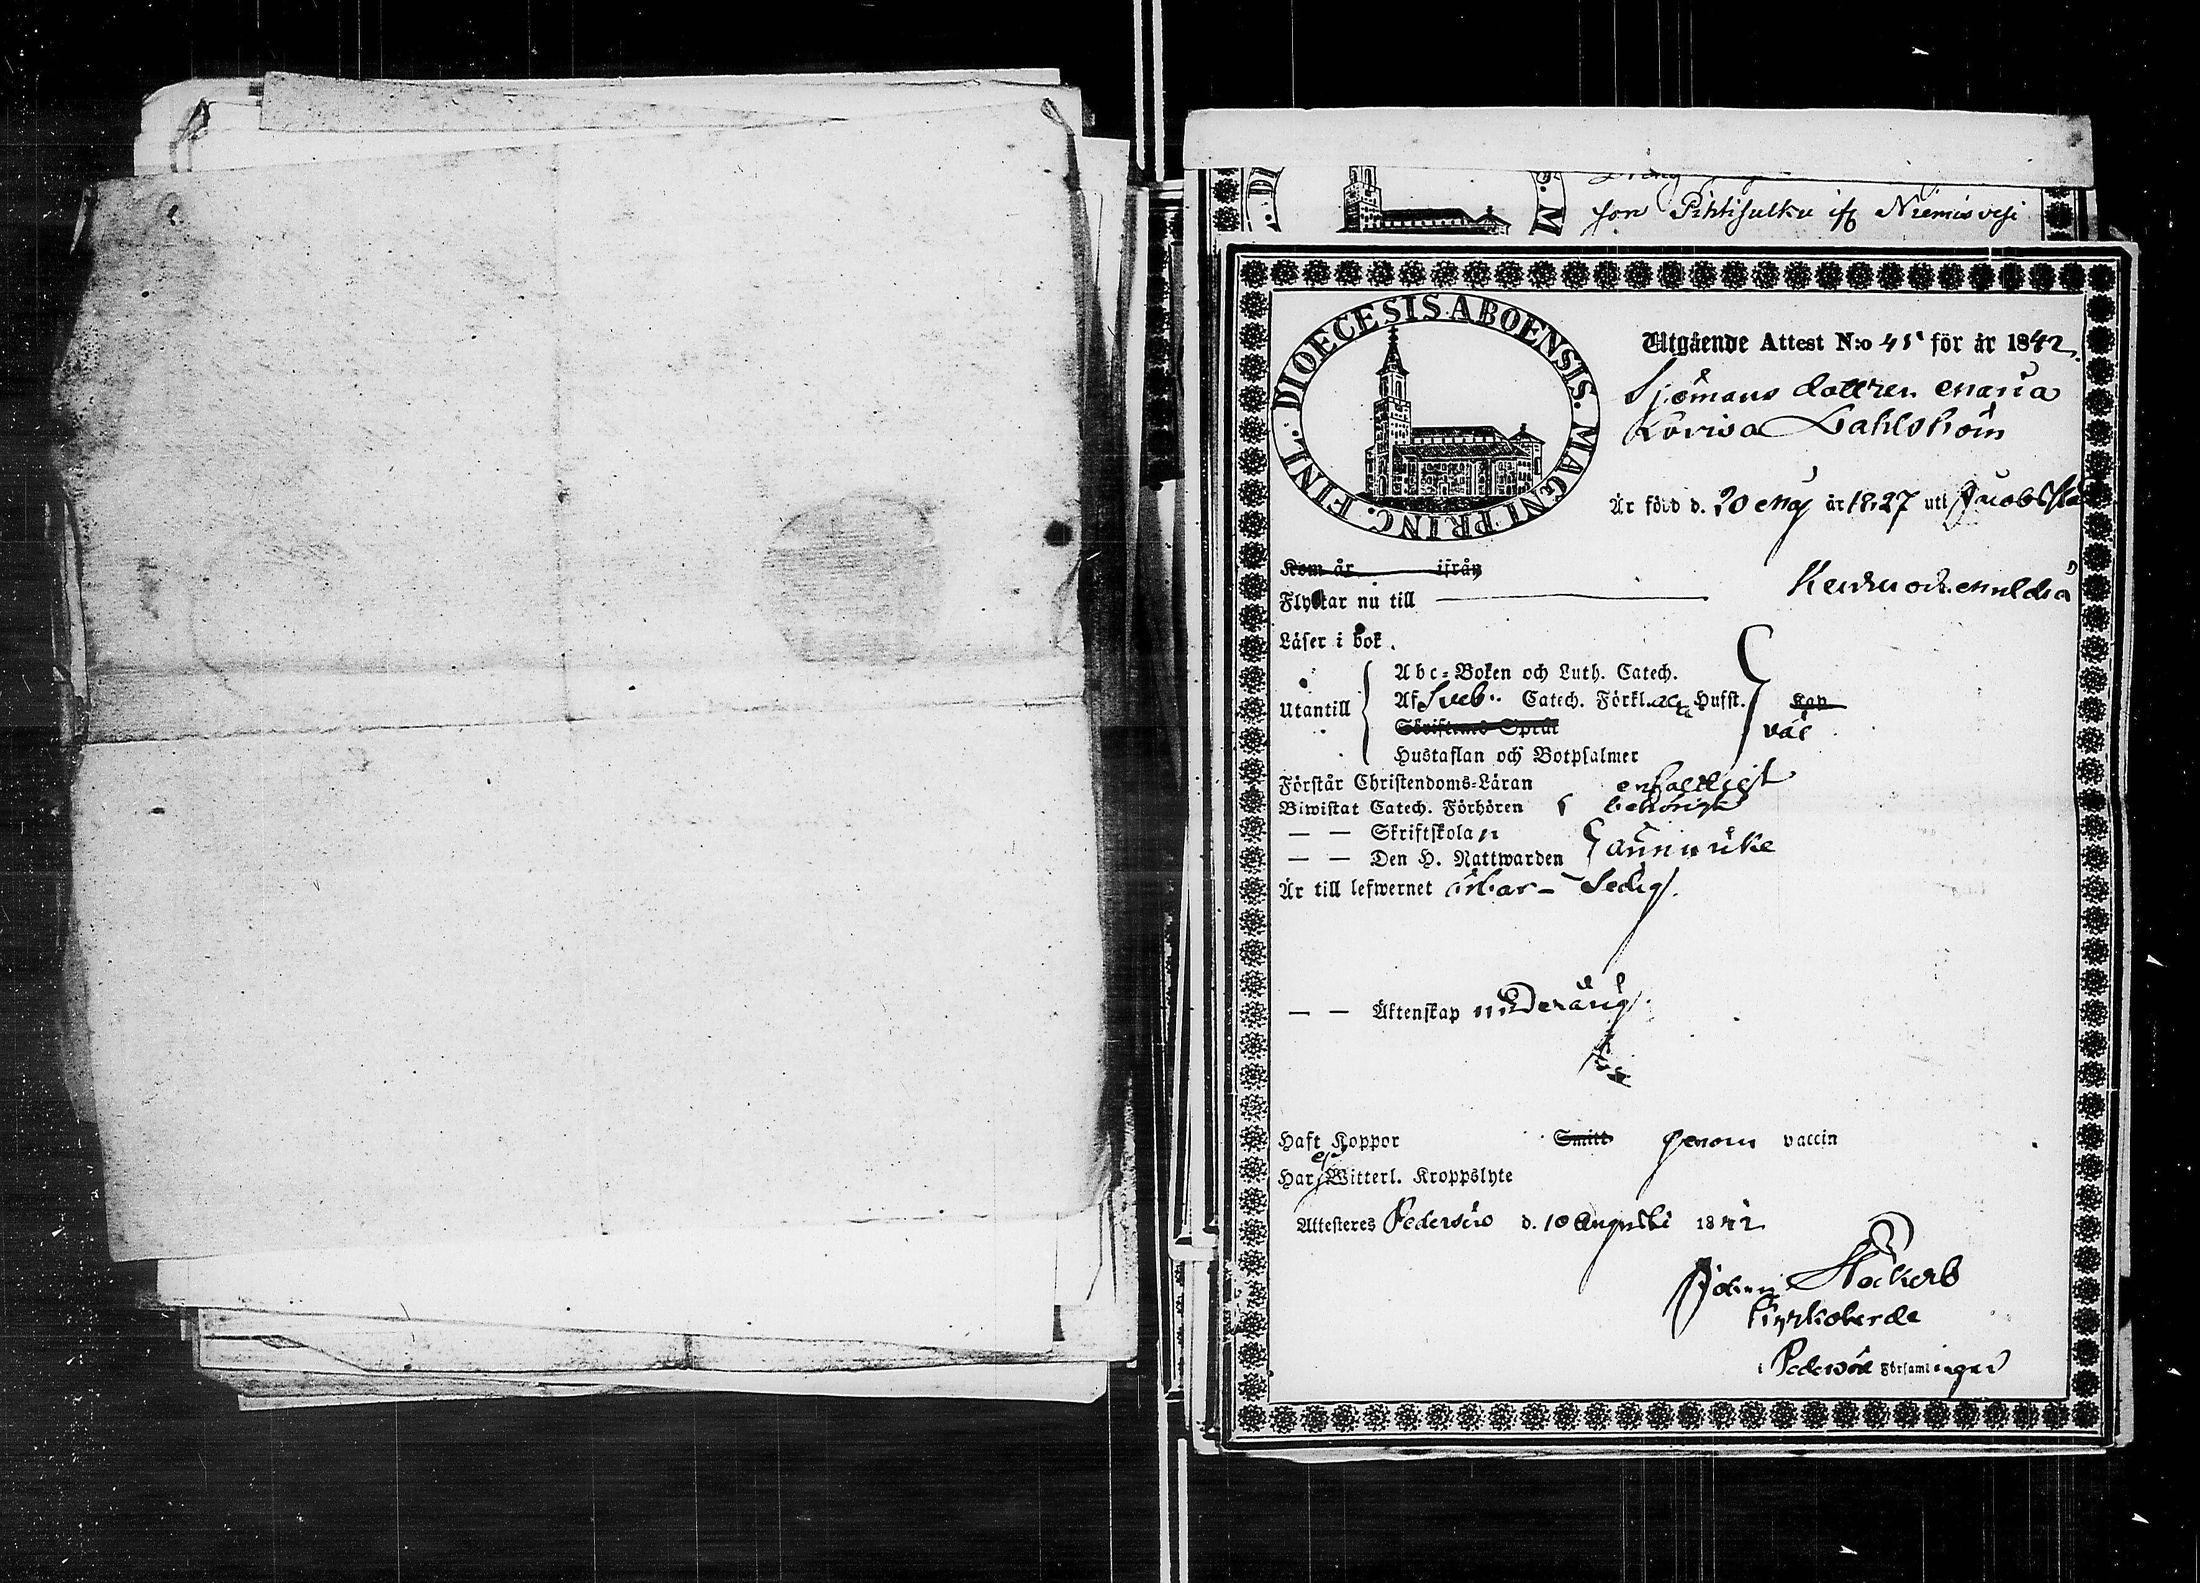 son Pihtisulku if Niemisvesi
DIOECESIS ABOENSIS. MAGNI PRINC. FINL.
Utgående Attest N:o 45 för år 1842.
Sjömans dottren Maria
Lovisa Dahlström
Är född d. 20 Maj år 1827 uti Jacobsta
Kom år ifrån
Flyttar nu till
Läser i bok.
Abc-Boken och Luth. Catech.
Utantill
Af Sveb. Catech. Förkl. Hufst. Kap
Skriftens Språk
väl
Hustaflan och Botpsalmer
Förstår Christendoms-Läran enfaldligt
Biwistat Catech. Förhören behörigt
— — Skriftskolan
— — Den H. Nattwarden
Är till lefwernet ärbar - ledig.
— — Äktenskap
Haft Koppor Smitt genom vaccin
Har ej Witterl. Kroppslyte
Attesteres Pedersöre d. 10 Augusti 1842
Kyrkoherde
i Pedersöre Församlingar